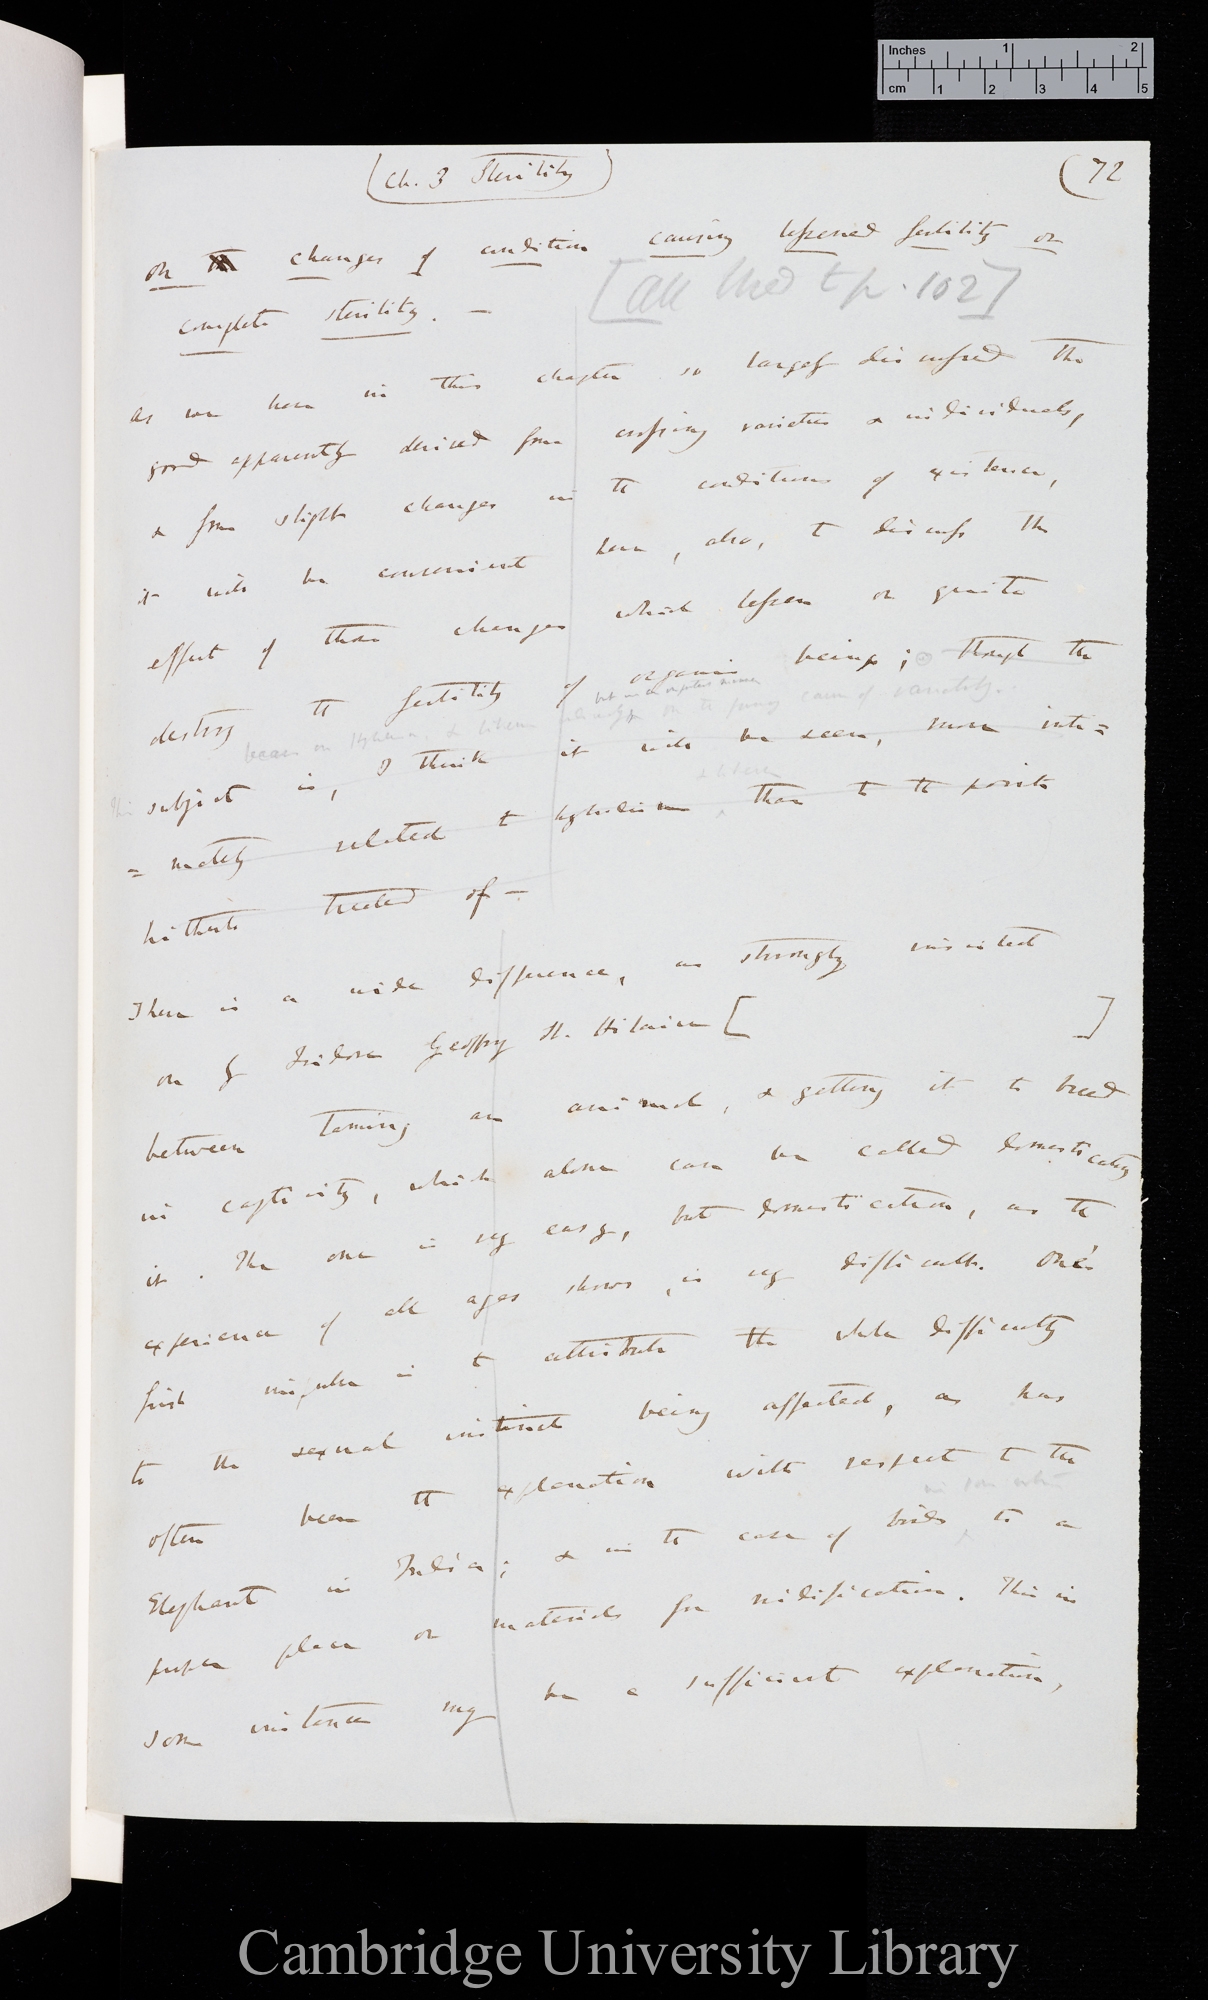 (Ch. 3 Sterility)
(72
On changes of condition causing lessened fertility or
[All used to p. 102]
complete sterility. —
As we have in this chapter so largely discussed the
good apparently derived from crossing varieties & individuals,
& from slight changes in the conditions of existence,
it will be convenient here, also, to discuss the
effect of those changes which lessen or quite
destroy the fertility of organic beings; though the
but in an
bears on Hybridism, & likewise on the cause of variability.
This subject is, I think it will be seen, more inti=
& likewise
=mately related to hybridism than to the points
hitherto treated of —
There is a wide difference, as strongly insisted
on by Isidore Geoffry St. Hilaire [ ]
between taming an animal, & getting it to breed
in captivity, which alone can be called domesticating
it. The one is very easy, but domestication, as the
experience of all ages shows, is very difficult. One's
first impulse is to attribute the whole difficulty
to the sexual instinct being affected, as has
often been the explanation with respect to the
Elephant in India; & in the case of birds to a
proper place or materials for nidification. This in
some instance may be a sufficient explanation,
Inches 1 2
cm 1 2 3 4 5
Cambridge University Library